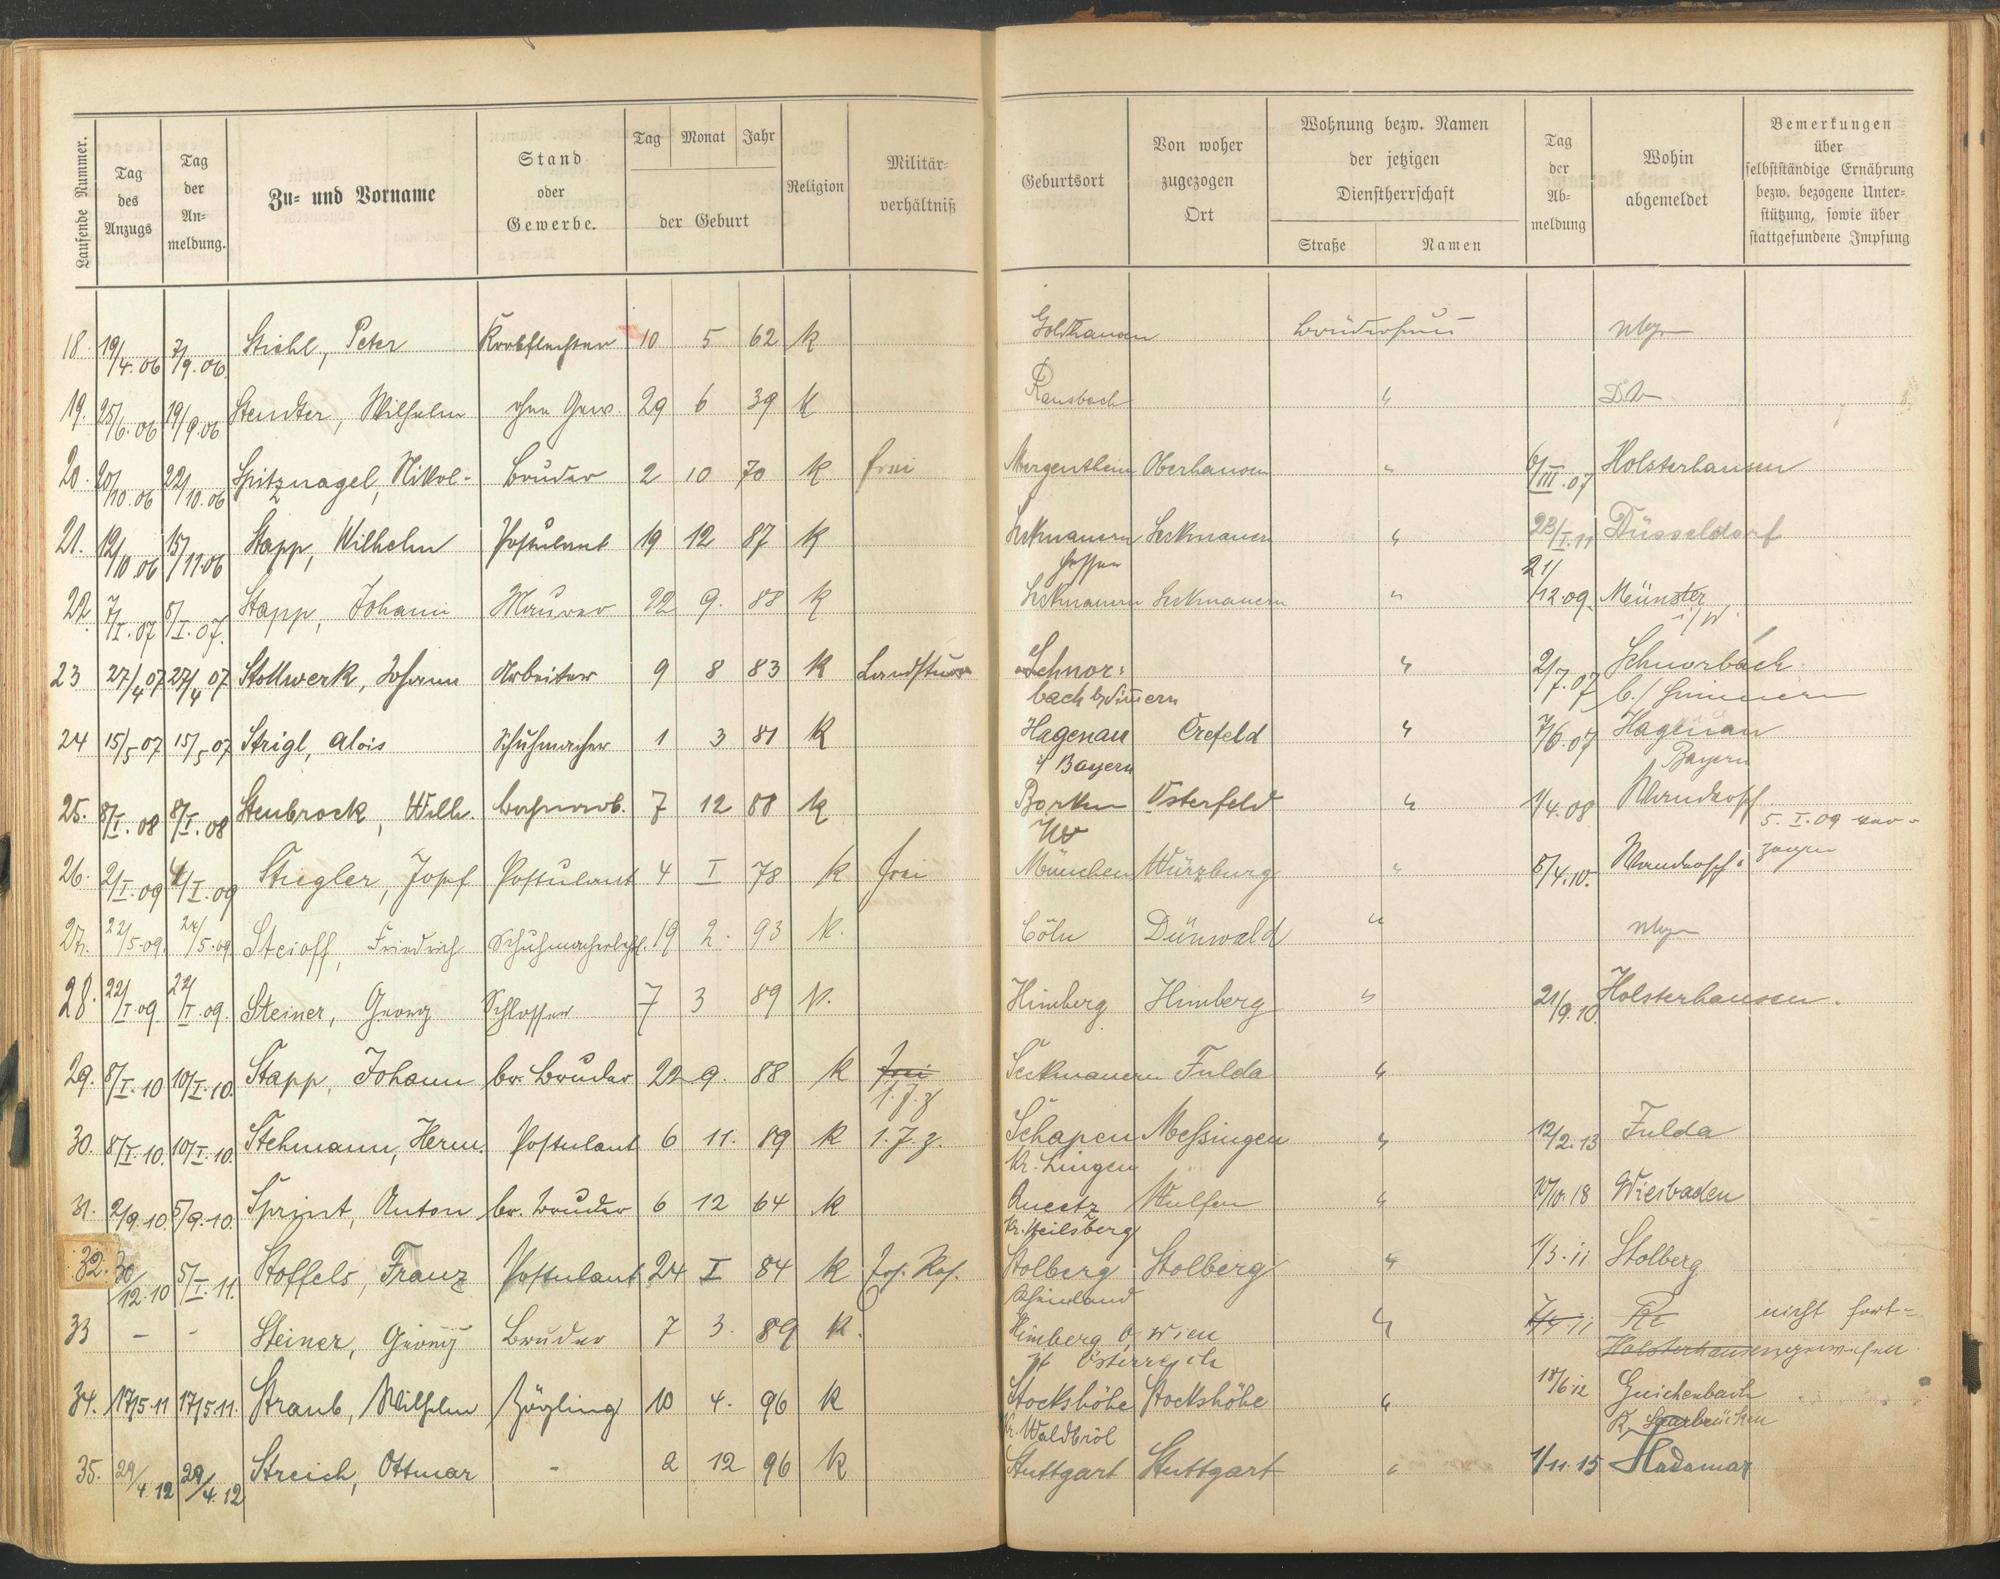 Laufende Nummer.
Tag des Anzugs
Tag der Anmeldung.
Zu- und Vorname
Stand oder Gewerbe.
Tag Monat Jahr
der Geburt
Religion
Militär-verhältniß
Geburtsort
Von woher zugezogen Ort
Wohnung bezw. Namen der jetzigen Dienstherrschaft
Straße Namen
Tag der Ab-meldung
Wohin abgemeldet
Bemerkungen über selbstständige Ernährung bezw. bezogene Unter-stützung, sowie über stattgefundene Impfung
18. 19/4.06 7/9.06. Stiehl, Peter Korbflechter 10 5 62 k Bruderhaus
19. 25/6.06 19/9.06 Stendter, Wilhelm ohne Gew. 29 6 39 k Ransbach "
20. 20/10.06 22/10.06 Spitznagel, Nikol. Bruder 2 10 70 k frei Mergentheim Oberhausen " 6/III.07 Holsterhausen
21. 12/10.06 15/11.06 Stapp, Wilhelm Postulant 19 12 87 k Seckmauern Hessen Seckmauern " 23/I.11 Düsseldorf
22. 7/I.07 8/I.07. Stapp, Johann Maurer 22 9. 88 k Seckmauern Seckmauern " 21/12.09. Münster i/W.
23 27/4 07 27/4 07 Stollwerk, Johann Arbeiter 9 8 83 k Landsturm Schnorbach b/Simern " 2/7.07 Schnorbach b./Simmern
24 15/5 07 15/5 07 Strigl, Alois Schuhmacher 1 3 81 k Hagenau i/ Bayern Crefeld " 7/6.07 Hagenau Bayern
25. 8/I.08 8/I.08 Stenbrock, Wilh. 7 12 88 k Borken W Osterfeld " 1/4.08 5. I.09
26. 2/I.09 4/I.09 Stiegler, Josef Postulant 4 I 78 k frei München Würzburg " 5/4.10.
27. 22/5.09. 24/5.09. Steioff, Friedrich Schuhmacherlehrl. 19 2. 93 k. Cöln Dünwald "
28. 22/I.09 22/II.09. Steiner, Georg Schlosser 7 3 89 k. Himberg Himberg " 21/9.10. Holsterhausen.
29. 8/I.10 10/I.10. Stapp, Johann br. Bruder 22 9. 88 k frei 1.J.z Seckmauern Fulda "
30. 8/I.10. 10/I.10. Stehmann, Herm. Postulant 6 11. 89 k 1.J.z. Schapen Kr. Lingen Meßingen " 12/2.13 Fulda
31. 2/9.10. 5/9.10. Sprint, Anton br. Bruder 6 12 64 k Queetz Kr. Heilsberg Wulfen " Wiesbaden
32. 30/12.10 5/I.11. Stoffels, Franz Postulant 24 I 84 k Stolberg Rheinland Stolberg " 1/3.11 Stolberg
33 - - Steiner, Georg Bruder 7 3. 89 k. Himberg b. Wien Österreich " Holsterhausen nicht fort-
34. 17/5.11 17/5.11. Straub, Wilhelm Zögling 10 4. 96 k Stockshöhe Kr. Waldbröl Stockshöhe " 18/6.12 Saarbrücken
35. 29/4.12 29/4.12 Streich, Ottmar - 2 12 96 k Stuttgart Stuttgart " 1/11.15 Hadamar